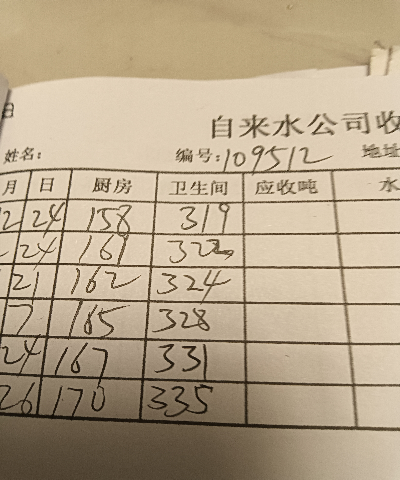 自来水公司收
姓名: 编号:109512 地址
月 日 厨房 卫生间 应收吨 水
24 158 319
24 161 322
21 162 324
7 165 328
24 167 331
26 170 335